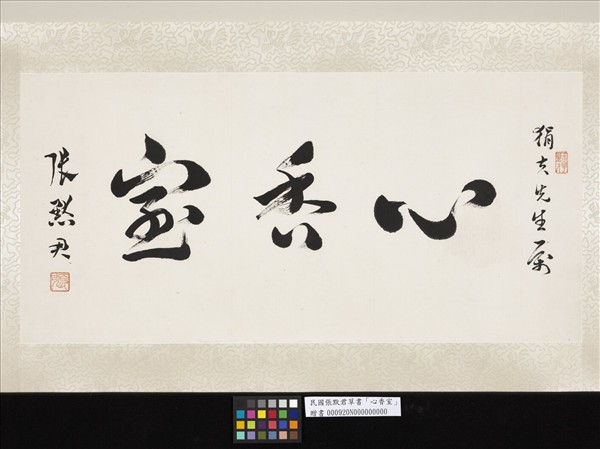 狷夫先生屬
心香室
張默君
民國張默君草書「心香室」
贈書 000920N000000000